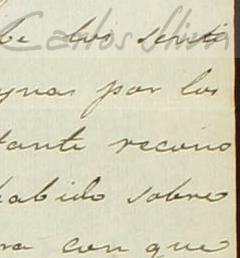 Carlos
be los senti
gnas por los
tante recono
habido sobre
ra con que